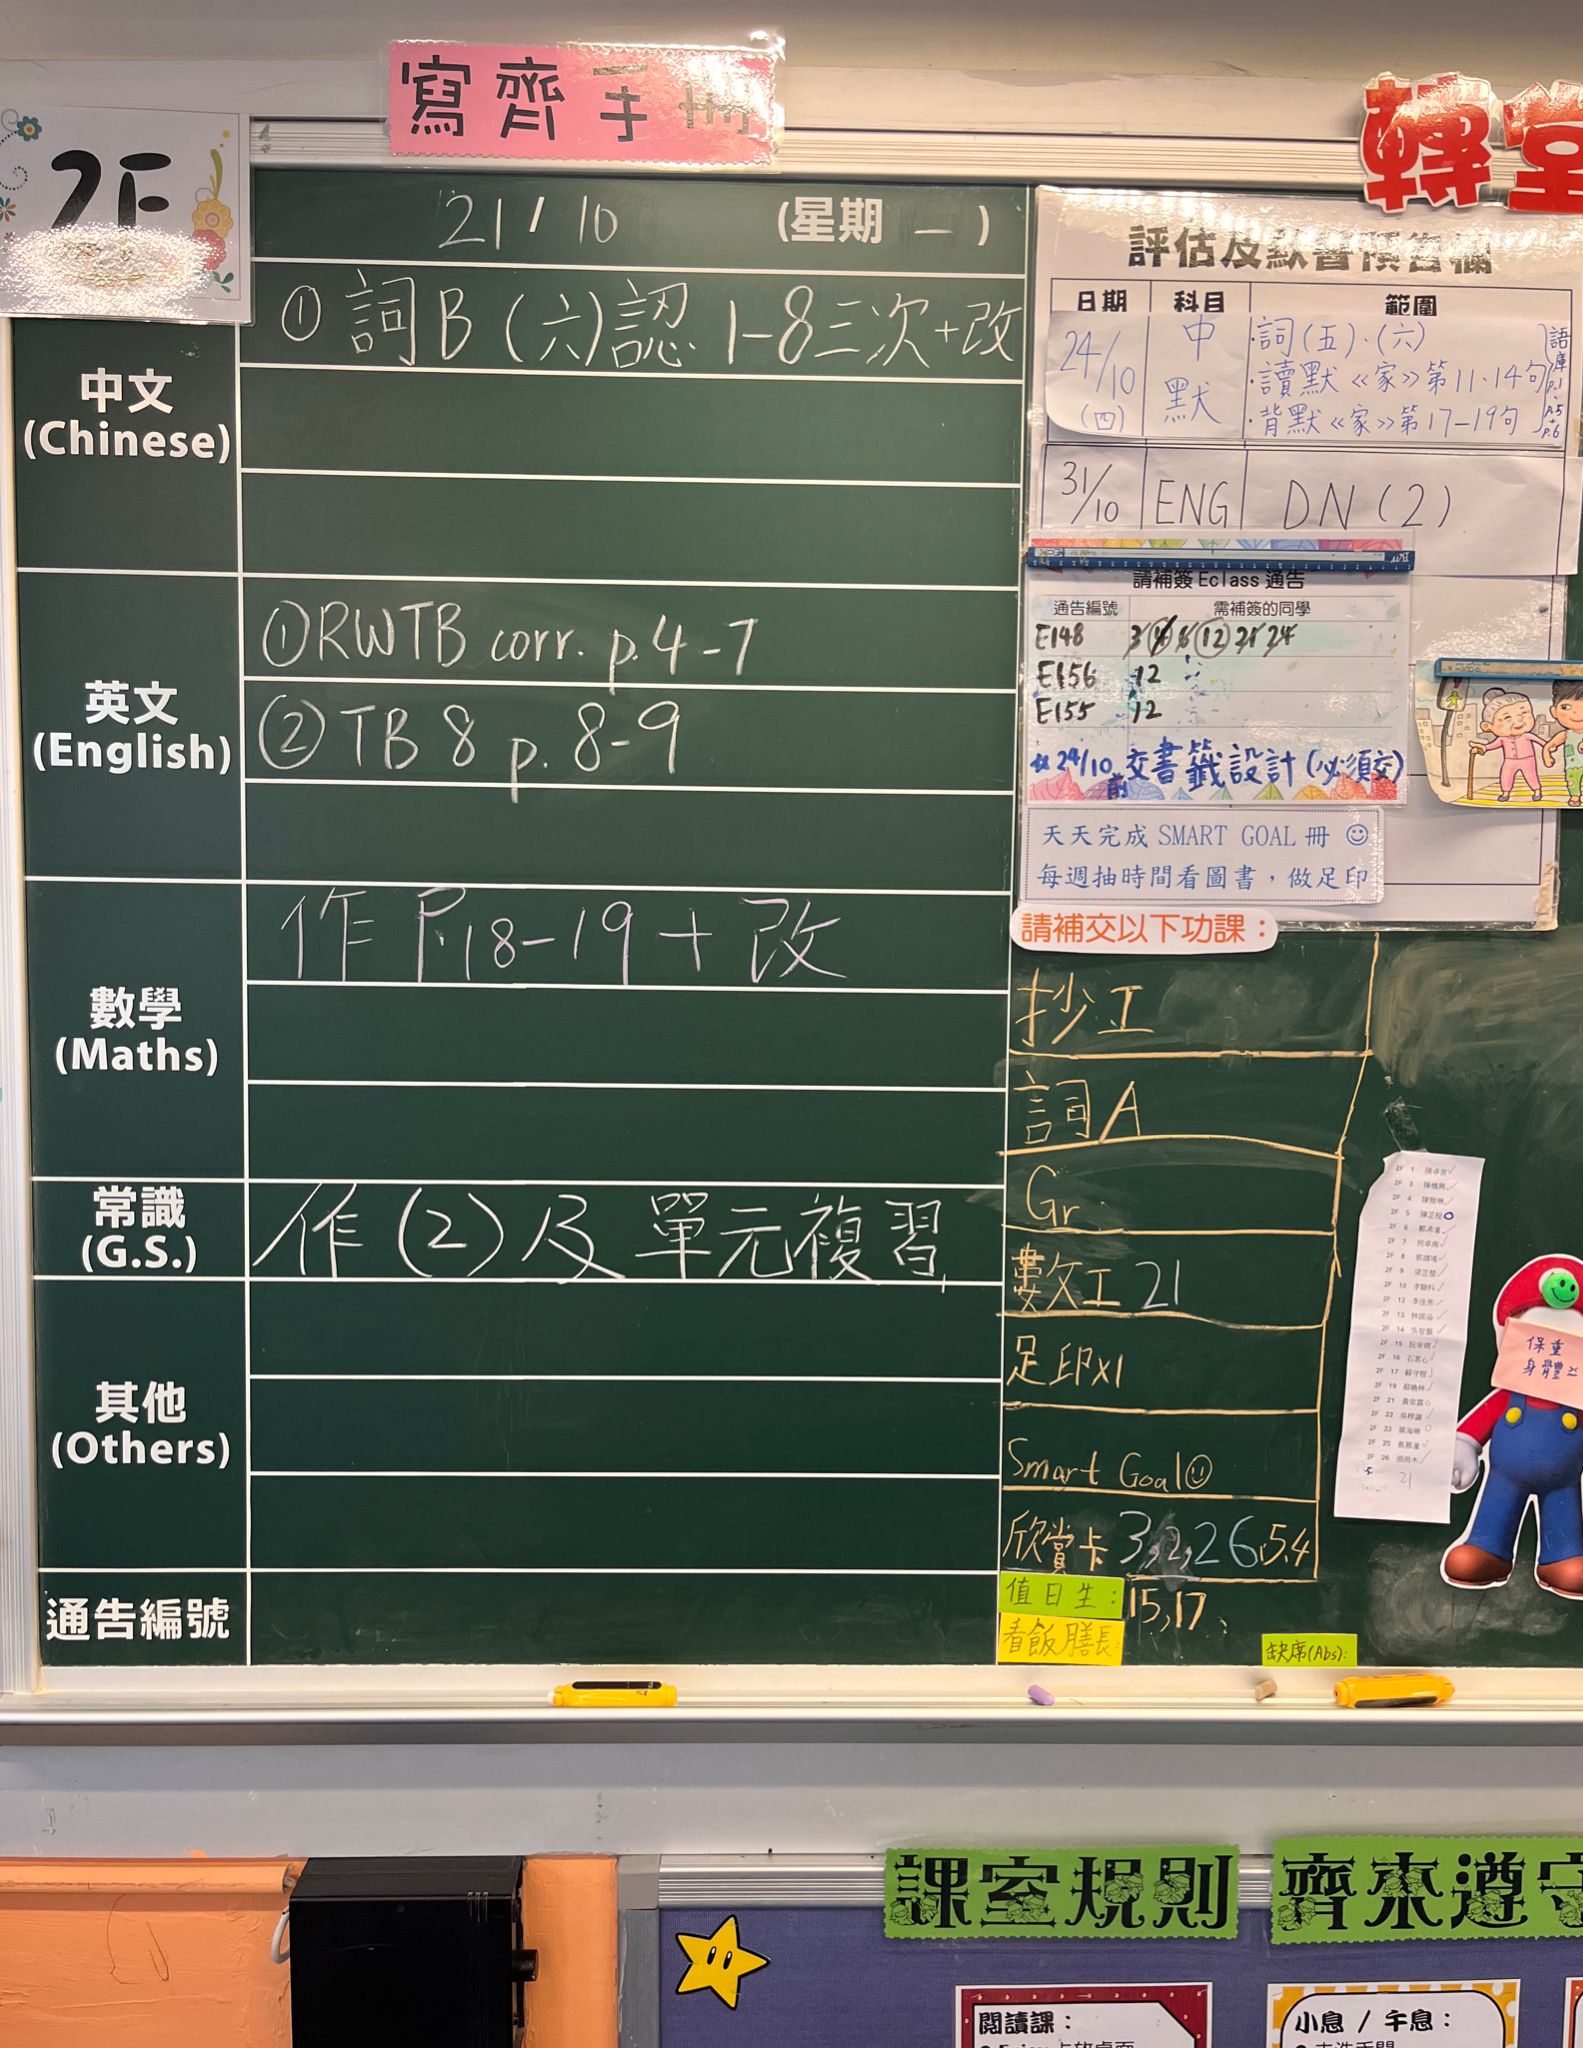 寫齊手冊
2F
轉堂
21 / 10 (星期 一 )
中文
(Chinese)
① 詞B (六)認 1-8三次+改
英文
(English)
①RWTB corr. p.4-7
②TB 8 p. 8-9
數學
(Maths)
作 P.18-19 + 改
常識
(G.S.)
作 (2) 及 單元複習
其他
(Others)
通告編號
評估及默書預告欄
日期 科目 範圍
24/10 (四) 中默
·詞(五)·(六)
·讀默《家》第11-14句
·背默《家》第17-19句
語庫 p.1、p.5+p.6
31/10 ENG DN (2)
請補簽 Eclass 通告
通告編號 需補簽的同學
E148 12
E156 12
E155 12
24/10前 交書籤設計(必須交)
天天完成 SMART GOAL 冊 ☺
每週抽時間看圖書，做足印
請補交以下功課：
抄工
詞A
Gr.
數工 21
足印x1
Smart Goal☺
欣賞卡 3,2,26,5,4
15,17
值日生：
看飯膳長:
缺席(Abs):
保重
身體
課室規則
齊來遵守
閱讀課：
小息 / 午息：